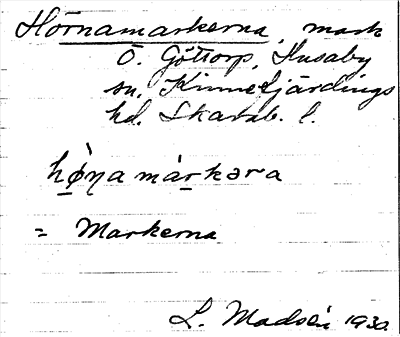 Hörnamarkerna, mark
Ö. Göttorp, Husaby
sn, Kinnefjärdings
hd. Skarab. l.
hø̀ŋa màrkəra
= Markerna
L. Madsén 1930.